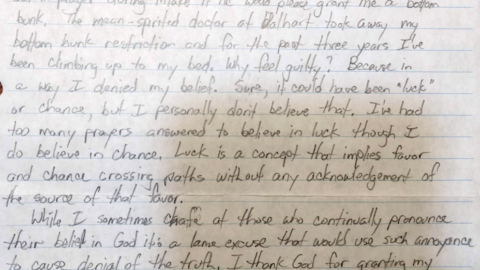 prayer during intake if he would please grant me a bottom
bunk. The mean-spirited doctor at Dalhart took away my
bottom bunk restriction and for the past three years I've
been climbing up to my bed. Why feel guilty? Because in
a way I denied my belief. Sure, it could have been "luck"
or chance, but I personally don't believe that. I've had
too many prayers answered to believe in luck though I
do believe in chance. Luck is a concept that implies favor
and chance crossing paths without any acknowledgement of
the source of that favor.
While I sometimes chafe at those who continually pronounce
their belief in God it's a lame excuse that would use such annoyance
to cause denial of the truth. I thank God for granting my